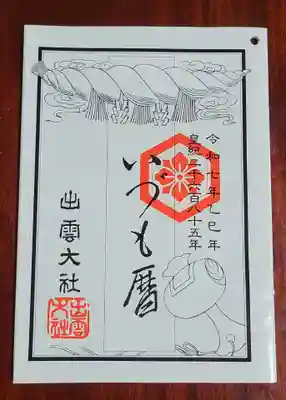 令和七年乙巳年
皇紀二千六百八十五年
いづも暦
出雲大社
出雲
大社